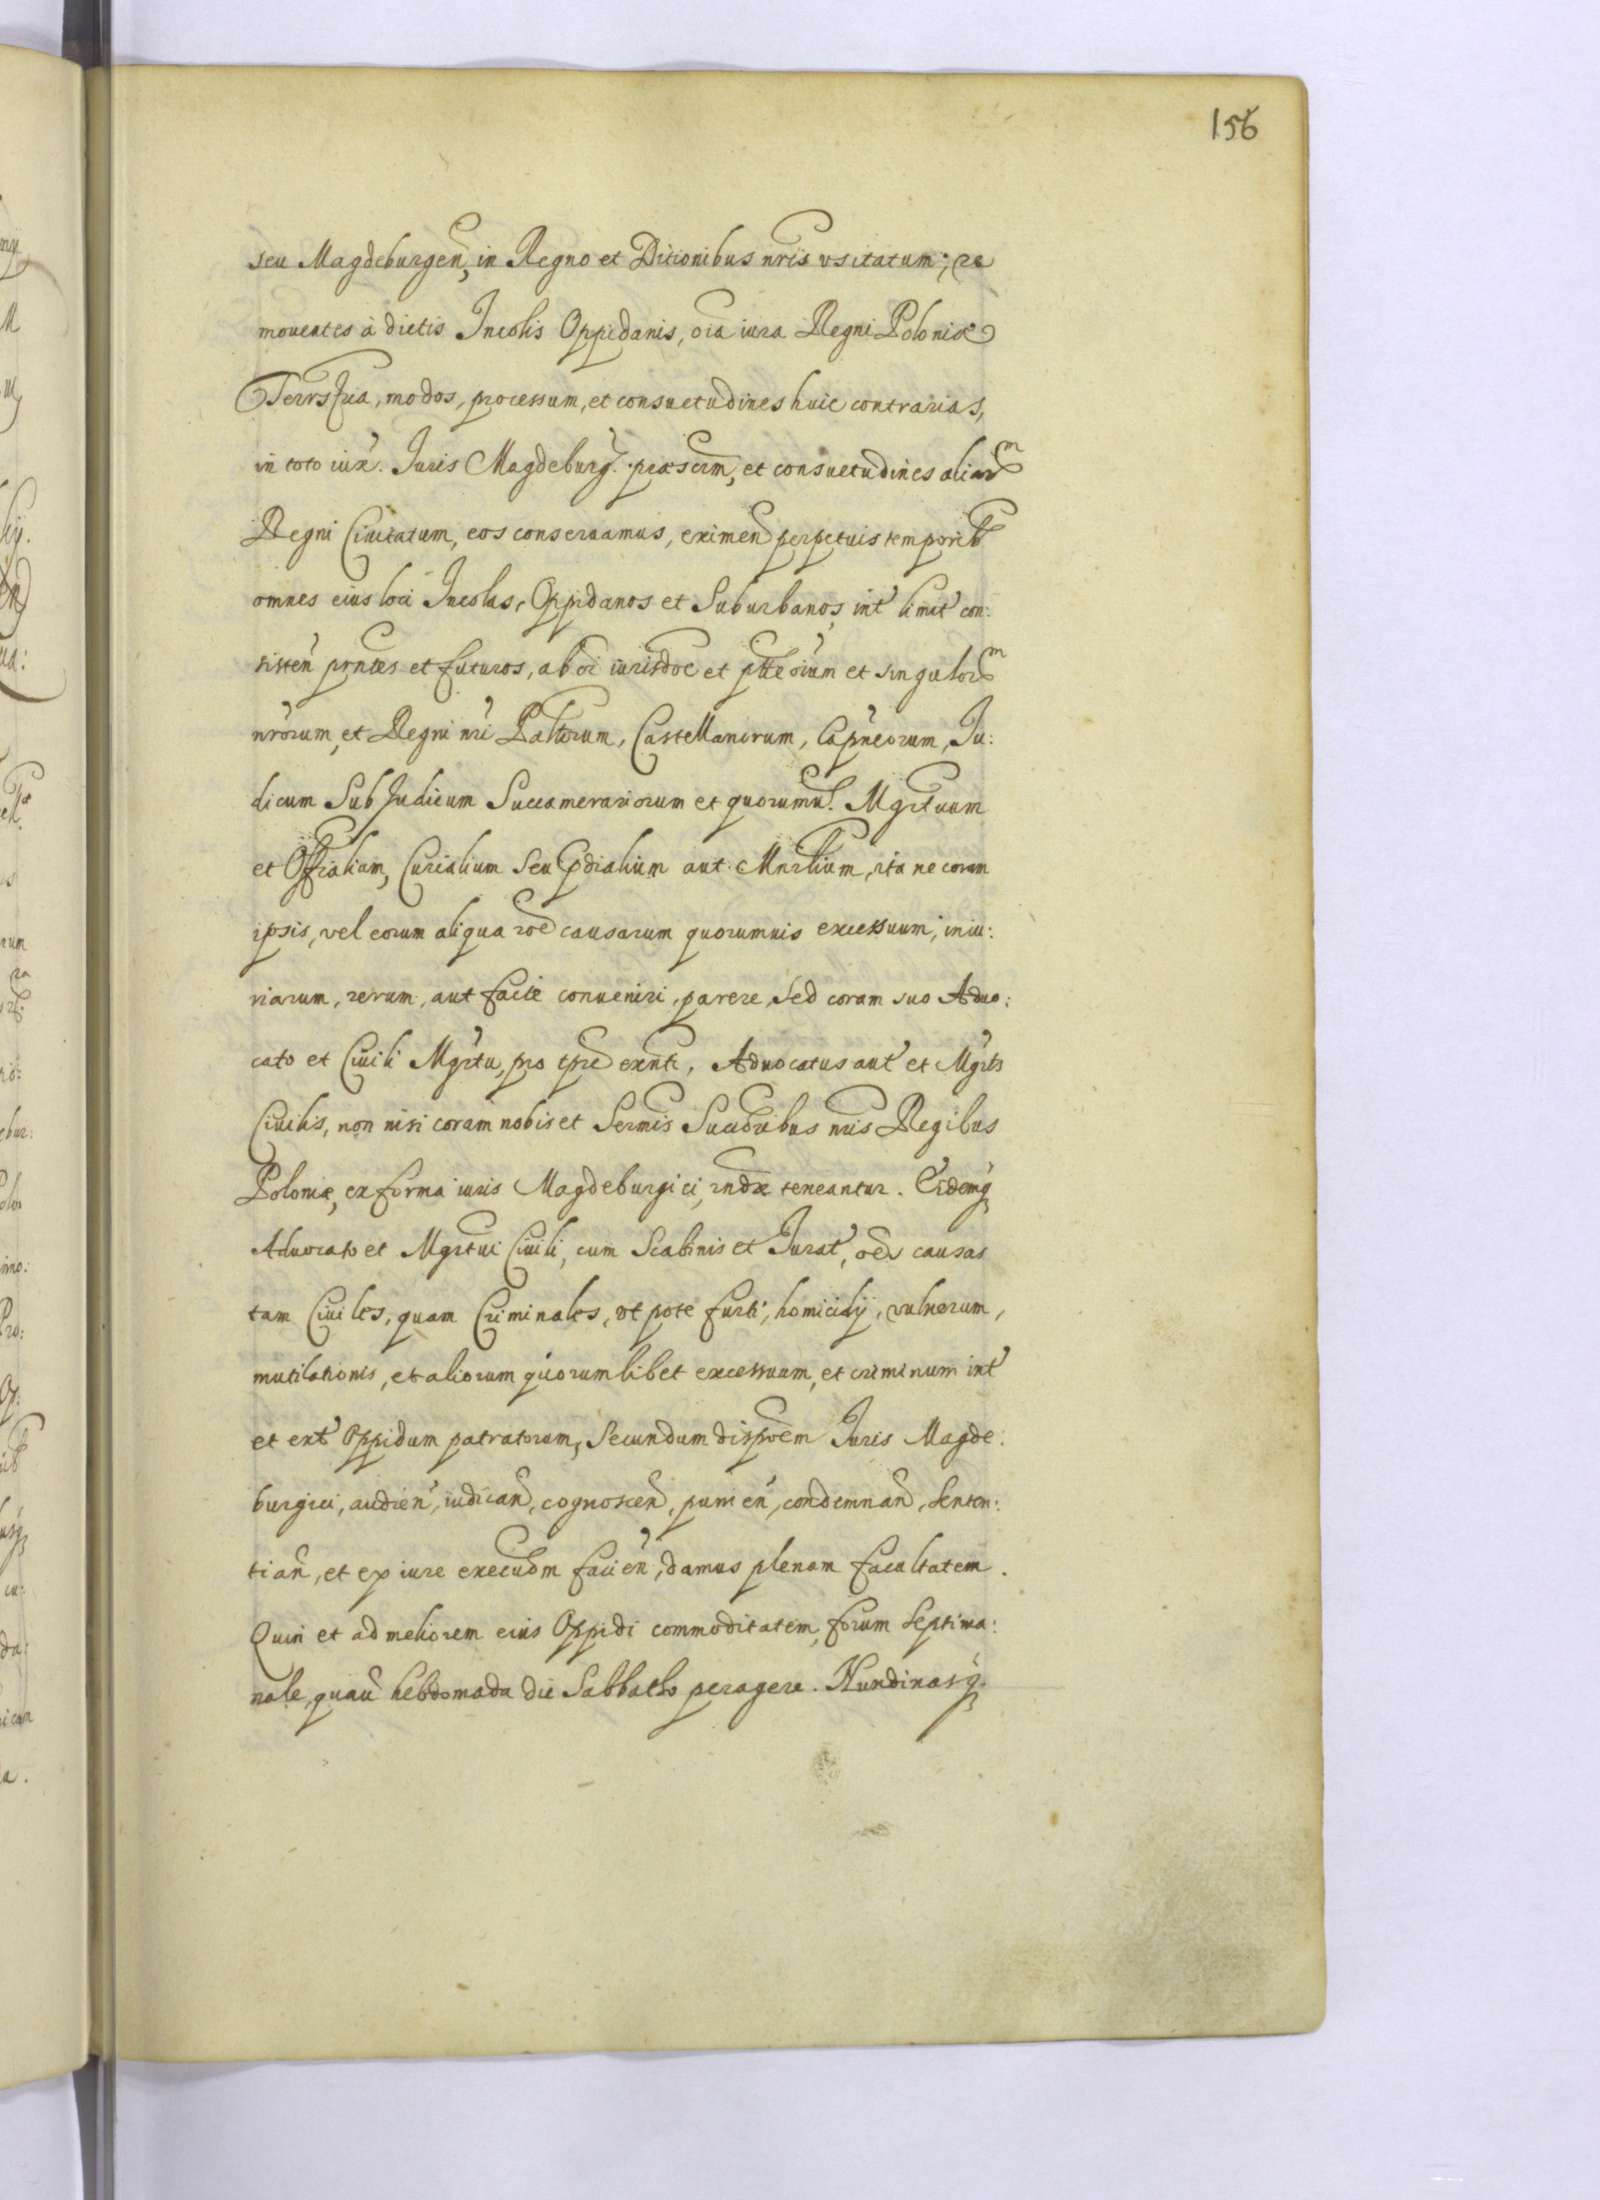 156
seu Magdeburgen, in Regno et Ditionibus nris vsitatum; re
mouentes à dictis Incolis Oppidanis, oia iura Regni Poloniæ
Terrstria, modos, processum, et consuetudines huic contrarias,
in toto iux. Juris Magdeburg. præscrm, et consuetudines aliarm
Regni Ciuitatum, eos conseruamus, eximen perpetuis temporib
omnes eius loci Incolas, Oppidanos et Suburbanos int limit con:
sisten prntes et futuros, ab oi iurisdoe et ptte oium et singulorm
nrorum, et Regni nri Paltorum, Castellanorum, Capneorum, Ju:
dicum SubJudicum Succamerariorum et quorumuis. Mgrtuum
et Offialium, Curialium seu Pdialium aut Mnrlium, ita ne coram
ipsis, vel eorum aliqua roe causarum quorumuis excessuum, iniu:
riarum, rerum, aut facte conueniri, parere, sed coram suo Aduo:
cato et Ciuili Mgrtu, pro tpre exnti, Aduocatus aut et Mgrts
Ciuilis, non nisi coram nobis et Sermis Succribus nris Regibus
Poloniæ, ex forma iuris Magdeburgici, rndre teneantur. Eidemq
Aduocato et Mgrtui Ciuili, cum Scabinis et Jurat, oes causas
tam Ciuiles, quam Criminales, vt pote furti, homicidij, vulnerum,
mutilationis, et aliorum quorumlibet excessuum, et criminum int
et ext Oppidum patratorum, secundum dispoem Juris Magde:
burgici, audien, iudican, cognoscen, punien, condemnan, senten:
tian, et ex iure execuom facien, damus plenam facultatem.
Quin et ad meliorem eius Oppidi commoditatem, forum septima:
nale, quau hebdomada die Sabbatho peragere. Nundinasq